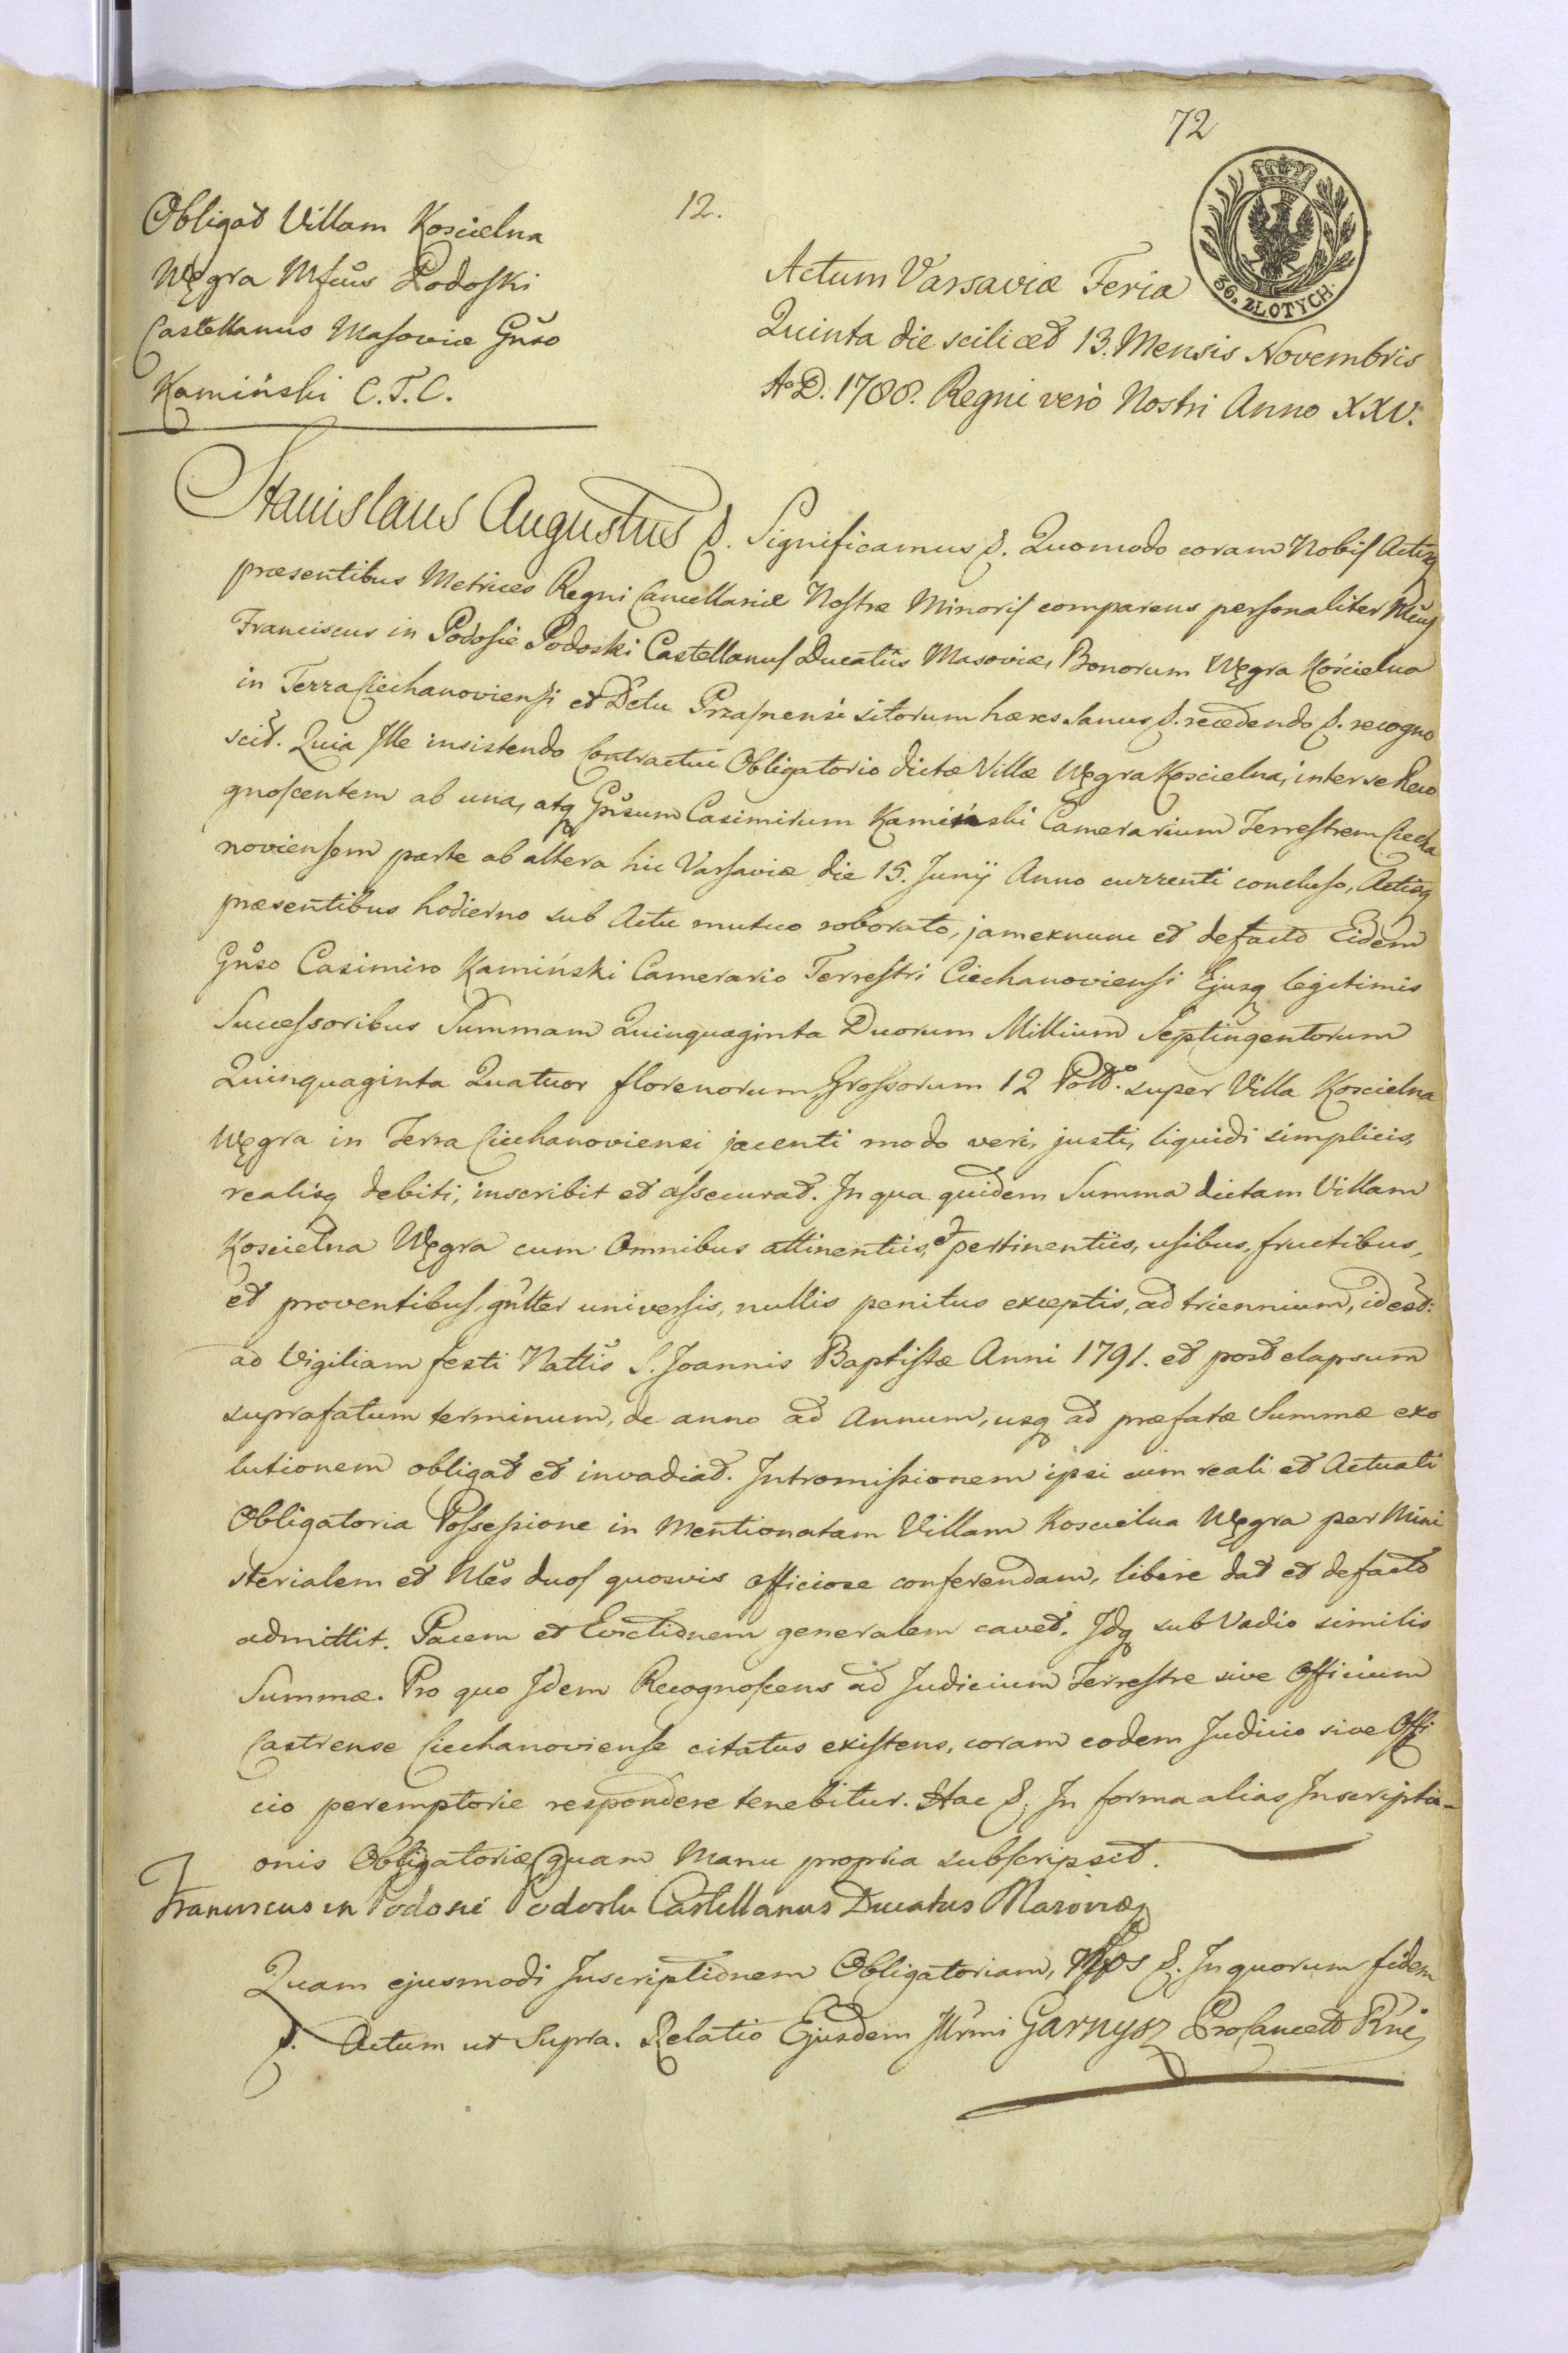 72
12.
Obligat Villam Koscielna
Węgra Mfcus Podoski
Castellanus Masoviæ Gnso
Kamiński C.T.C.
36. ZŁOTYCH.
Actum Varsaviæ Feria
Quinta die scilicet 13. Mensis Novembris
A° D. 1788. Regni verò Nostri Anno XXV.
Stanislaus Augustus &. Significamus &. Quomodo coram Nobis Actisq
præsentibus Metrices Regni Cancellariæ Nostræ Minoris comparens personaliter
Franciscus in Podosie Podoski Castellanus Ducatûs Masoviæ, Bonorum Węgra Kościelna
in Terra Ciechanoviensi et Dctu Przasnensi sitorum hæres sanus &. recedendo &. recogno
scit. Quia Ille insistendo Contractui Obligatorio dictæ Villæ Węgra Koscielna, inter se Reco
gnoscentem ab una, atq Gnsum Casimirum Kamiński Camerarium Terrestrem Ciecha
noviensem parte ab altera hic Varsaviæ die 15. Junij Anno currenti concluso, Actisq
præsentibus hodierno sub Actu mutuo roborato, jam ex nunc et defacto Eidem
Gnso Casimiro Kamiński Camerario Terrestri Ciechanoviensi Ejusq legitimis
Successoribus Summam Quinquaginta Duorum Millium Septingentorum
Quinquaginta Quatuor florenorum Grossorum 12 super Villa Koscielna
Węgra in Terra Ciechanoviensi jacenti modo veri, justi, liquidi simplicis,
realisq debiti, inscribit et assecurat. In qua quidem Summa dictam Villam
Koscielna Węgra cum Omnibus attinentiis, et pertinentiis, usibus, fructibus,
et proventibus, gnltter universis, nullis penitus exceptis, ad triennium, id est:
ad Vigiliam festi Nattis S. Joannis Baptistæ Anni 1791. et post elapsum
suprafatum terminum, de anno ad Annum, usq ad præfatæ Summæ exo
lutionem obligat et invadiat. Intromissionem ipsi cum reali et Actuali
Obligatoria Possessione in Mentionatam Villam Koscielna Węgra per Mini
sterialem et Nles duos quosvis officiose conferendam, libere dat et defacto
admittit. Pacem et Evictionem generalem cavet. Idq sub Vadio similis
Summæ. Pro quo Idem Recognoscens ad Judicium Terrestre sive Officium
Castrense Ciechanoviense citatus existens, coram eodem Judicio sive Offi
cio peremptorie respondere tenebitur. Hac &. In forma alias Inscripti-
onis Obligatoriæ quam Manu propria subscripsit.
Franciscus in Podosie Podoski Castellanus Ducatus Masoviæ
Quam ejusmodi Inscriptionem Obligatoriam, Nos &. In quorum fidem
&. Actum ut Supra. Relatio Ejusdem Illrmi Garnysz ProCancell Rni